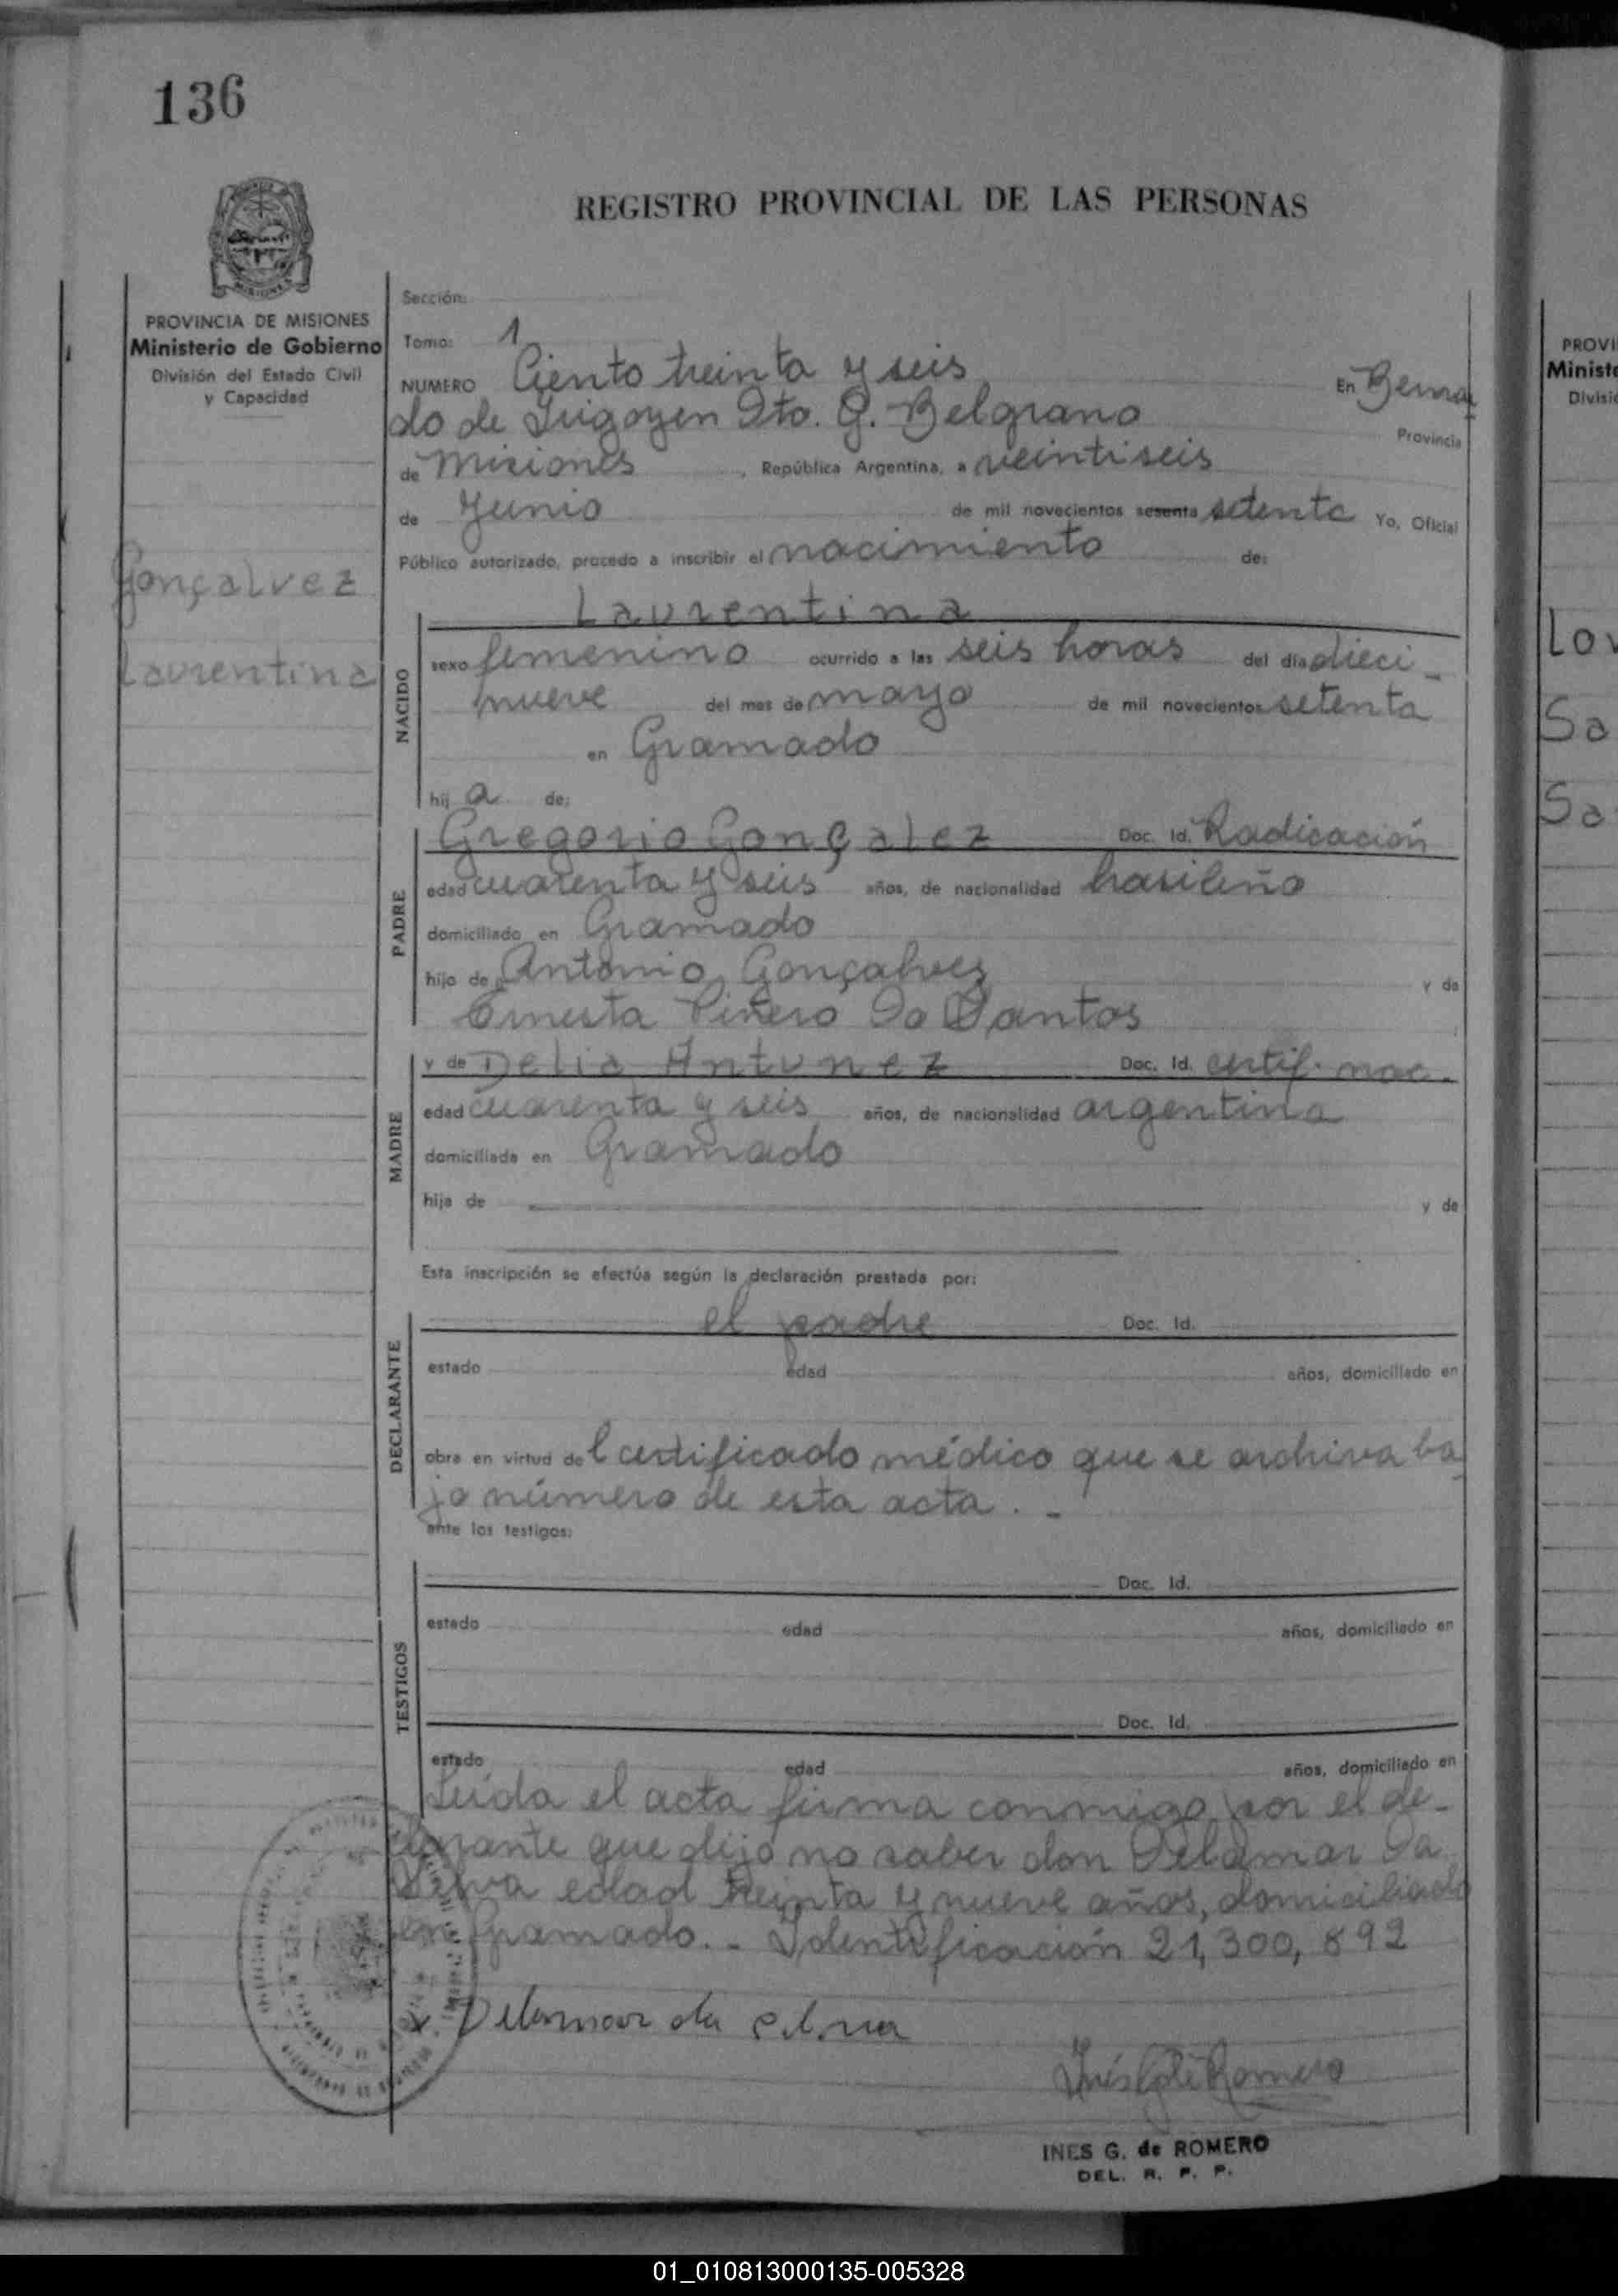 136
REGISTRO PROVINCIAL DE LAS PERSONAS
MISIONES
PROVINCIA DE MISIONES
Ministerio de Gobierno
División del Estado Civil
y Capacidad
Gonçalvez
Laurentina
Sección:
Tomo: 1
NUMERO Ciento treinta y seis En Berna
do de Irigoyen Dto. G. Belgrano Provincia
de Misiones, República Argentina, a veintiseis
de Junio de mil novecientos sesenta setenta Yo, Oficial
Público autorizado, procedo a inscribir el nacimiento de:
NACIDO
Laurentina
sexo femenino ocurrido a las seis horas del día dieci-
nueve del mes de mayo de mil novecientos setenta
en Gramado
hij a de:
PADRE
Gregorio Gonçalez Doc. Id. Radicación
edad cuarenta y seis años, de nacionalidad brasileño
domiciliado en Gramado
hijo de Antonio Gonçalvez y de
Ernesta Piñero Do Santos
MADRE
y de Delia Antunez Doc. Id. certif. nac.
edad cuarenta y seis años, de nacionalidad argentina
domiciliada en Gramado
hija de y de
Esta inscripción se efectúa según la declaración prestada por:
DECLARANTE
el padre Doc. Id.
estado edad años, domiciliado en
obra en virtud de l certificado médico que se archiva ba
jo número de esta acta. -
ante los testigos:
TESTIGOS
Doc. Id.
estado edad años, domiciliado en
Doc. Id.
estado edad años, domiciliado en
Leída el acta firma conmigo por el de-
clarante que dijo no saber don Delamar Da
Silva edad treinta y nueve años, domiciliado
en Gramado. - Identificación 21,300,892
Delamar da silva
Inés G. de Romero
INES G. de ROMERO
DEL. R. P. P.
PROVI
Ministe
Divisió
Lov
Sa
Sa
01_010813000135-005328